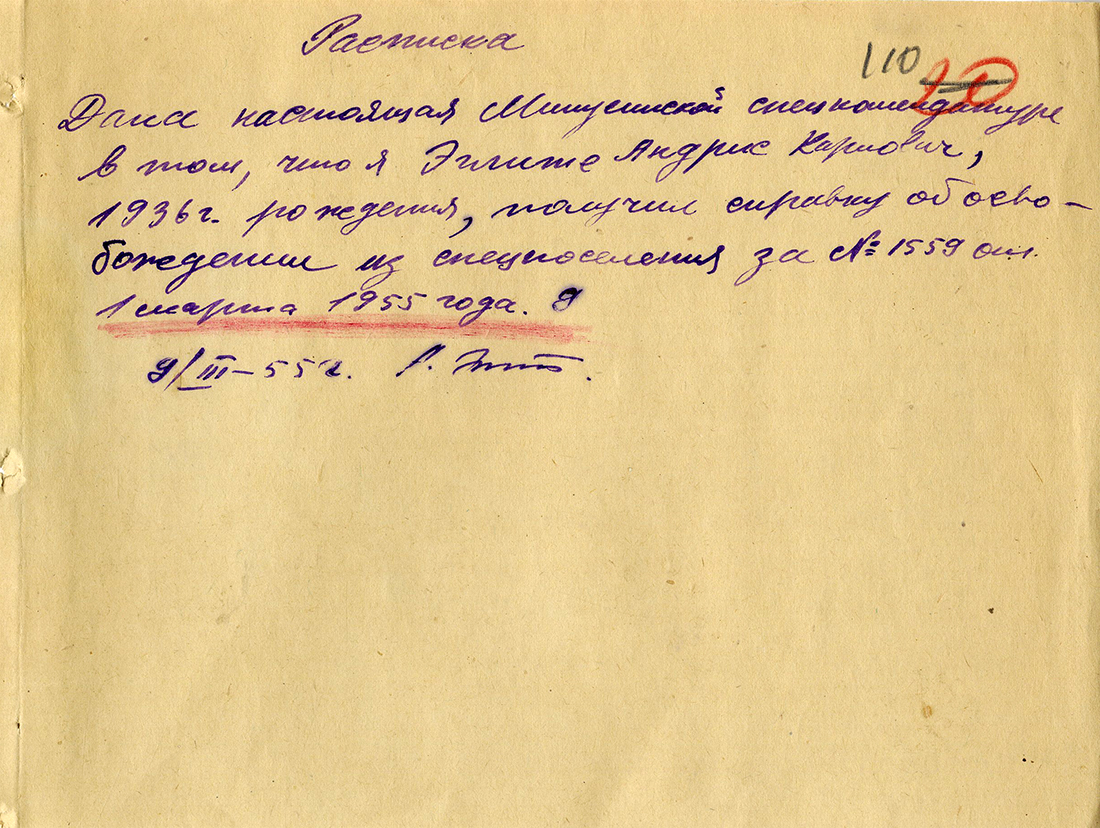 Расписка
110
Дана настоящая спецкомендатуре
в том, что я Эглите Андрис Карлович,
1936 г. рождения, получил справку об осво-
бождении из спецпоселения за № 1559 от
1 марта 1955 года.
9/III-55 г.